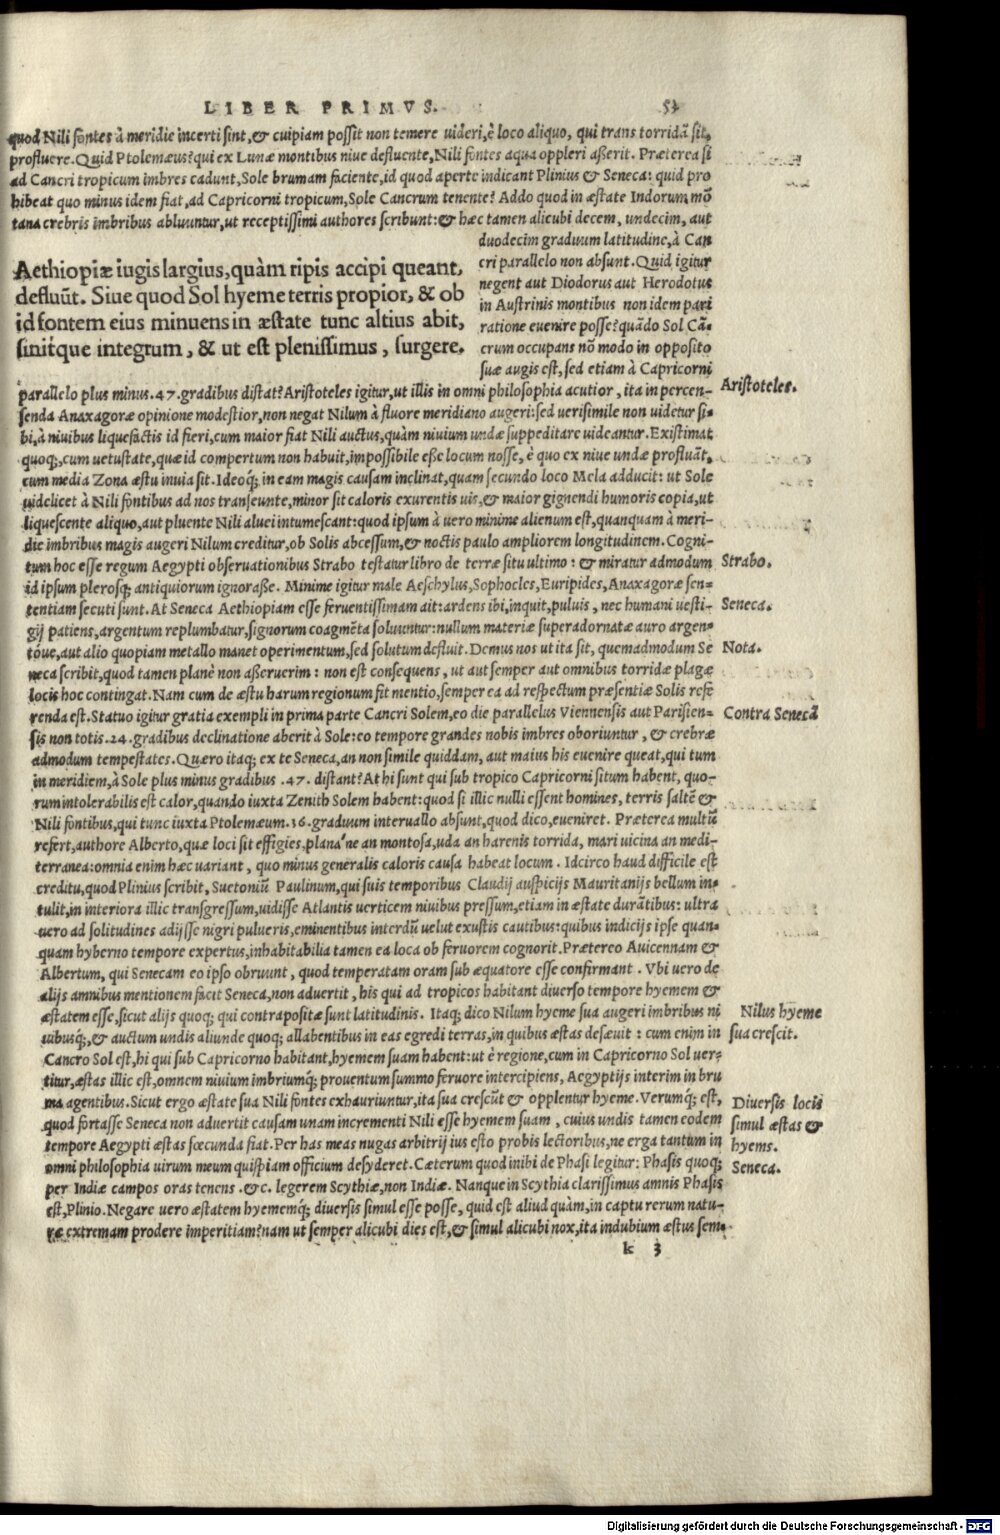 LIBER PRIMVS. 53
quod Nili fontes à meridie incerti sint, & cuipiam possit non temere uideri, è loco aliquo, qui trans torridã sit,
profluere. Quid Ptolemæus? qui ex Lunæ montibus niue defluente, Nili fontes aqua oppleri aßerit. Præterea si
ad Cancri tropicum imbres cadunt, Sole brumam faciente, id quod aperte indicant Plinius & Seneca: quid pro
hibeat quo minus idem fiat, ad Capricorni tropicum, Sole Cancrum tenente? Addo quod in æstate Indorum mõ
tana crebris imbribus abluuntur, ut receptissimi authores scribunt: & hæc tamen alicubi decem, undecim, aut
duodecim graduum latitudine, à Can
cri parallelo non absunt. Quid igitur
negent aut Diodorus aut Herodotus
in Austrinis montibus non idem pari
ratione euenire posse? quãdo Sol Cã-
crum occupans nõ modo in opposito
suæ augis est, sed etiam à Capricorni
Aethiopiæ iugis largius, quàm ripis accipi queant,
defluũt. Siue quod Sol hyeme terris propior, & ob
id fontem eius minuens in æstate tunc altius abit,
sinitque integrum, & ut est plenissimus, surgere.
parallelo plus minus .47. gradibus distat? Aristoteles igitur, ut illis in omni philosophia acutior, ita in percen-
senda Anaxagoræ opinione modestior, non negat Nilum à fluore meridiano augeri: sed uerisimile non uidetur si-
bi, à niuibus liquefactis id fieri, cum maior fiat Nili auctus, quàm niuium undæ suppeditare uideantur. Existimat
quoq;, cum uetustate, quæ id compertum non habuit, impossibile eße locum nosse, è quo ex niue undæ profluãt,
cum media Zona æstu inuia sit. Ideoq́; in eam magis causam inclinat, quam secundo loco Mela adducit: ut Sole
uidelicet à Nili fontibus ad nos transeunte, minor sit caloris exurentis uis, & maior gignendi humoris copia, ut
liquescente aliquo, aut pluente Nili aluei intumescant: quod ipsum à uero minime alienum est, quanquam à meri-
die imbribus magis augeri Nilum creditur, ob Solis abcessum, & noctis paulo ampliorem longitudinem. Cogni-
tum hoc esse regum Aegypti obseruationibus Strabo testatur libro de terræ situ ultimo: & miratur admodum
id ipsum plerosq; antiquiorum ignoraße. Minime igitur male Aeschylus, Sophocles, Euripides, Anaxagoræ sen-
tentiam secuti sunt. At Seneca Aethiopiam esse feruentissimam ait: ardens ibi, inquit, puluis, nec humani uesti-
gij patiens, argentum replumbatur, signorum coagmẽta soluuntur: nullum materiæ superadornatæ auro argen-
tóue, aut alio quopiam metallo manet operimentum, sed solutum defluit. Demus nos ut ita sit, quemadmodum Se
neca scribit, quod tamen planè non aßeruerim: non est consequens, ut aut semper aut omnibus torridæ plagæ
locis hoc contingat. Nam cum de æstu harum regionum fit mentio, semper ea ad respectum præsentiæ Solis refe
renda est. Statuo igitur gratia exempli in prima parte Cancri Solem, eo die parallelus Viennensis aut Parisien-
sis non totis .24. gradibus declinatione aberit à Sole: eo tempore grandes nobis imbres oboriuntur, & crebræ
admodum tempestates. Quæro itaq; ex te Seneca, an non simile quiddam, aut maius his euenire queat, qui tum
in meridiem, à Sole plus minus gradibus .47. distant? At hi sunt qui sub tropico Capricorni situm habent, quo-
rum intolerabilis est calor, quando iuxta Zenith Solem habent: quod si illic nulli essent homines, terris saltẽ &
Nili fontibus, qui tunc iuxta Ptolemæum .36. graduum interuallo absunt, quod dico, eueniret. Præterea multũ
refert, authore Alberto, quæ loci sit effigies, plana'ne an montosa, uda an harenis torrida, mari uicina an medi-
terranea: omnia enim hæc uariant, quo minus generalis caloris causa habeat locum. Idcirco haud difficile est
creditu, quod Plinius scribit, Suetoniũ Paulinum, qui suis temporibus Claudij auspicijs Mauritanijs bellum in-
tulit, in interiora illic transgressum, uidisse Atlantis uerticem niuibus pressum, etiam in æstate durãtibus: ultra
uero ad solitudines adijsse nigri pulueris, eminentibus interdũ uelut exustis cautibus: quibus indicijs ipse quan-
quam hyberno tempore expertus, inhabitabilia tamen ea loca ob feruorem cognorit. Prætereo Auicennam &
Albertum, qui Senecam eo ipso obruunt, quod temperatam oram sub æquatore esse confirmant. Vbi uero de
alijs amnibus mentionem facit Seneca, non aduertit, his qui ad tropicos habitant diuerso tempore hyemem &
æstatem esse, sicut alijs quoq; qui contrapositæ sunt latitudinis. Itaq; dico Nilum hyeme sua augeri imbribus ni
uibusq́;, & auctum undis aliunde quoq; allabentibus in eas egredi terras, in quibus æstas desæuit: cum enim in
Cancro Sol est, hi qui sub Capricorno habitant, hyemem suam habent: ut è regione, cum in Capricorno Sol uer-
titur, æstas illic est, omnem niuium imbriumq́; prouentum summo feruore intercipiens, Aegyptijs interim in bru
ma agentibus. Sicut ergo æstate sua Nili fontes exhauriuntur, ita sua crescũt & opplentur hyeme. Verumq́; est,
quod fortasse Seneca non aduertit causam unam incrementi Nili esse hyemem suam, cuius undis tamen eodem
tempore Aegypti æstas fœcunda fiat. Per has meas nugas arbitrij ius esto probis lectoribus, ne erga tantum in
omni philosophia uirum meum quispiam officium desyderet. Cæterum quod inibi de Phasi legitur: Phasis quoq;
per Indiæ campos oras tenens .&c. legerem Scythiæ, non Indiæ. Nanque in Scythia clarissimus amnis Phasis
est, Plinio. Negare uero æstatem hyememq́; diuersis simul esse posse, quid est aliud quàm, in captu rerum natu-
ræ extremam prodere imperitiam? nam ut semper alicubi dies est, & simul alicubi nox, ita indubium æstus sem-
k 3
Aristoteles.
Strabo.
Seneca.
Nota.
Contra Senecã
Nilus hyeme
sua crescit.
Diuersis locis
simul æstas &
hyems.
Seneca.
Digitalisierung gefördert durch die Deutsche Forschungsgemeinschaft - DFG